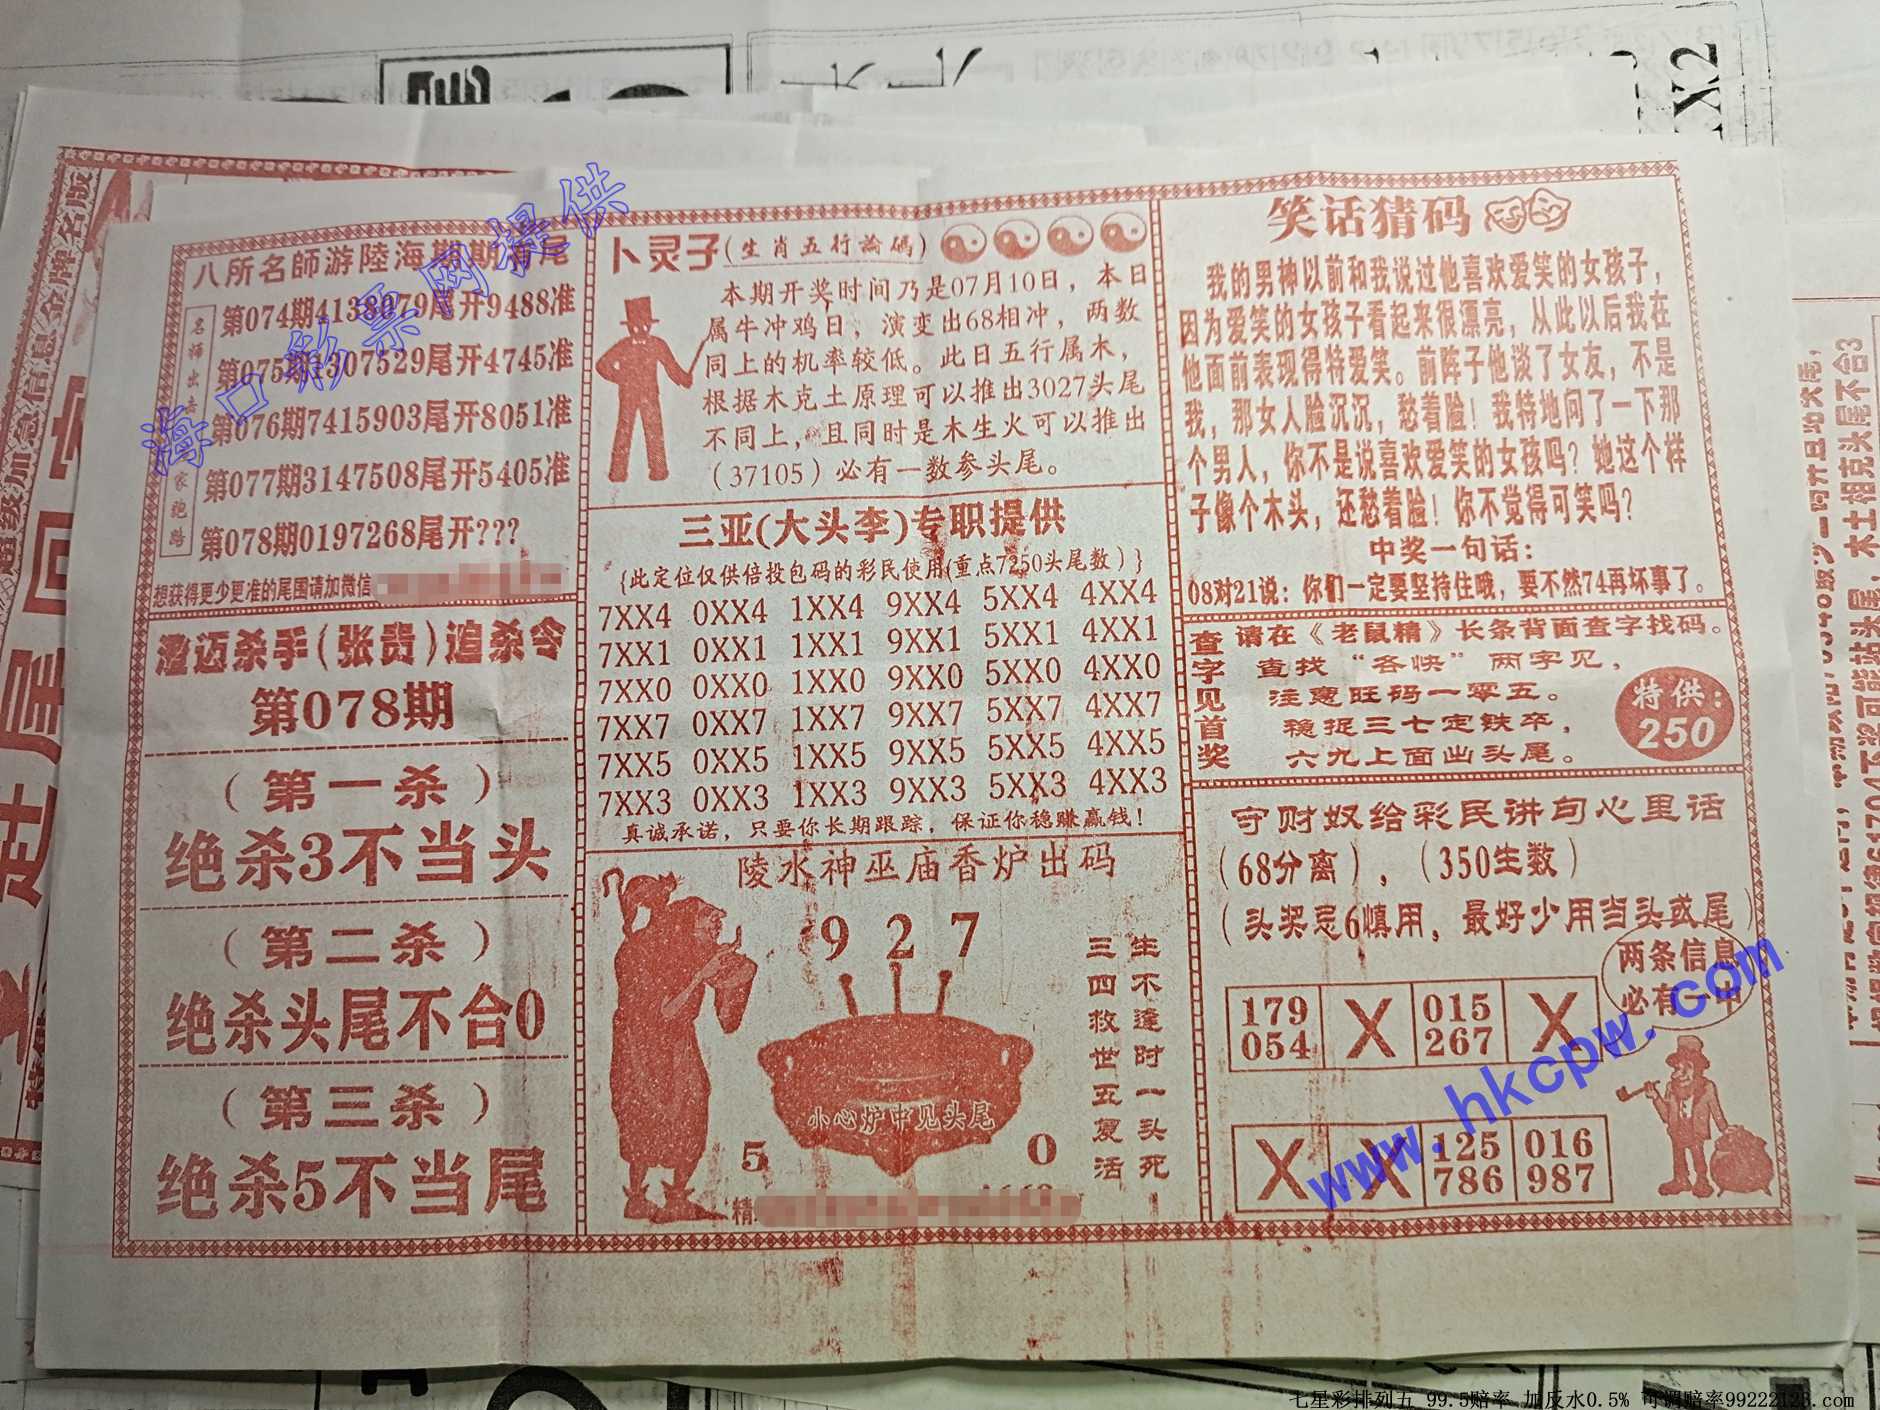 八所名師游陸海期期有尾
名师出击 家跑路
第074期4138079尾开9488准
第075期1307529尾开4745准
第076期7415903尾开8051准
第077期3147508尾开5405准
第078期0197268尾开???
想获得更少更准的尾围请加微信
澄迈杀手(张贵)追杀令
第078期
(第一杀)
绝杀3不当头
(第二杀)
绝杀头尾不合0
(第三杀)
绝杀5不当尾
卜灵子(生肖五行論碼)
本期开奖时间乃是07月10日，本日
属牛冲鸡日，演变出68相冲，两数
同上的机率较低。此日五行属木，
根据木克土原理可以推出3027头尾
不同上，且同时是木生火可以推出
(37105)必有一数参头尾。
三亚(大头李)专职提供
{此定位仅供倍投包码的彩民使用(重点7250头尾数)}
7XX4 0XX4 1XX4 9XX4 5XX4 4XX4
7XX1 0XX1 1XX1 9XX1 5XX1 4XX1
7XX0 0XX0 1XX0 9XX0 5XX0 4XX0
7XX7 0XX7 1XX7 9XX7 5XX7 4XX7
7XX5 0XX5 1XX5 9XX5 5XX5 4XX5
7XX3 0XX3 1XX3 9XX3 5XX3 4XX3
真诚承诺，只要你长期跟踪，保证你稳赚赢钱！
陵水神巫庙香炉出码
9 2 7
生不逢时一头死
三四救世五复活
小心炉中见头尾
5 0
精
笑话猜码
我的男神以前和我说过他喜欢爱笑的女孩子，
因为爱笑的女孩子看起来很漂亮，从此以后我在
他面前表现得特爱笑。前阵子他谈了女友，不是
我，那女人脸沉沉，愁着脸！我特地问了一下那
个男人，你不是说喜欢爱笑的女孩吗？她这个样
子像个木头，还愁着脸！你不觉得可笑吗？
中奖一句话：
08对21说：你们一定要坚持住哦，要不然74再坏事了。
查字见首奖
请在《老鼠精》长条背面查字找码。
查找“各快”两字见，
注意旺码一零五。
稳捉三七定铁卒，
六九上面出头尾。
特供：
250
守财奴给彩民讲句心里话
(68分离)，(350生数)
(头奖忌6慎用，最好少用当头或尾)
两条信息
必有一中
179 X 015 X
054 267
X X 125 016
786 987
海口彩票网提供
www.hkcpw.com
X2
七星彩排列五 99.5赔率 加反水0.5% 可调赔率99222123.com